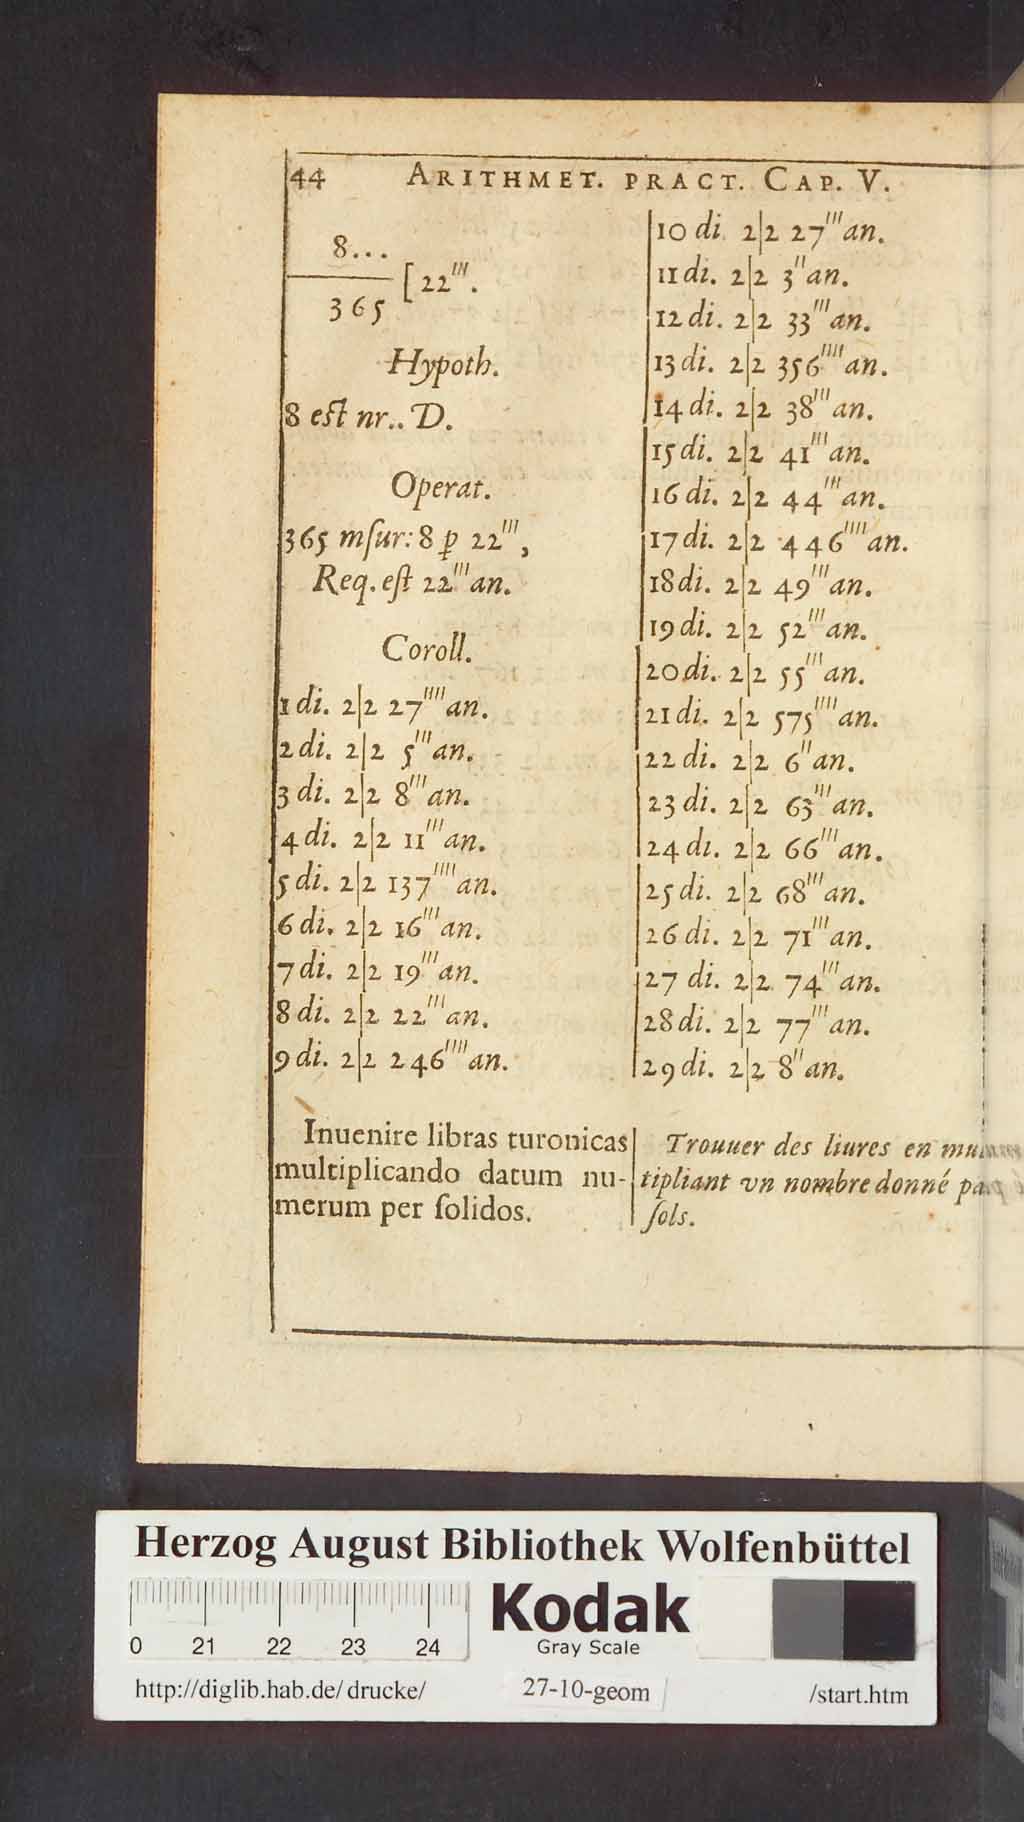 44 ARITHMET. PRACT. CAP. V.
8...
365 [22'''.
Hypoth.
8 est nr.. D.
Operat.
365 mſur: 8 p 22''',
Req. eſt 22''' an.
Coroll.
1 di. 2|2 27'''' an.
2 di. 2|2 5''' an.
3 di. 2|2 8''' an.
4 di. 2|2 11''' an.
5 di. 2|2 137'''' an.
6 di. 2|2 16''' an.
7 di. 2|2 19''' an.
8 di. 2|2 22''' an.
9 di. 2|2 246'''' an.
10 di. 2|2 27''' an.
11 di. 2|2 3'' an.
12 di. 2|2 33''' an.
13 di. 2|2 356'''' an.
14 di. 2|2 38''' an.
15 di. 2|2 41''' an.
16 di. 2|2 44''' an.
17 di. 2|2 446'''' an.
18 di. 2|2 49''' an.
19 di. 2|2 52''' an.
20 di. 2|2 55''' an.
21 di. 2|2 575'''' an.
22 di. 2|2 6'' an.
23 di. 2|2 63''' an.
24 di. 2|2 66''' an.
25 di. 2|2 68''' an.
26 di. 2|2 71''' an.
27 di. 2|2 74''' an.
28 di. 2|2 77''' an.
29 di. 2|2 8'' an.
Inuenire libras turonicas
multiplicando datum nu-
merum per ſolidos.
Trouuer des liures en
tipliant vn nombre donné
ſols.
Herzog August Bibliothek Wolfenbüttel
0 21 22 23 24
Kodak
Gray Scale
http://diglib.hab.de/drucke/ 27-10-geom /start.htm